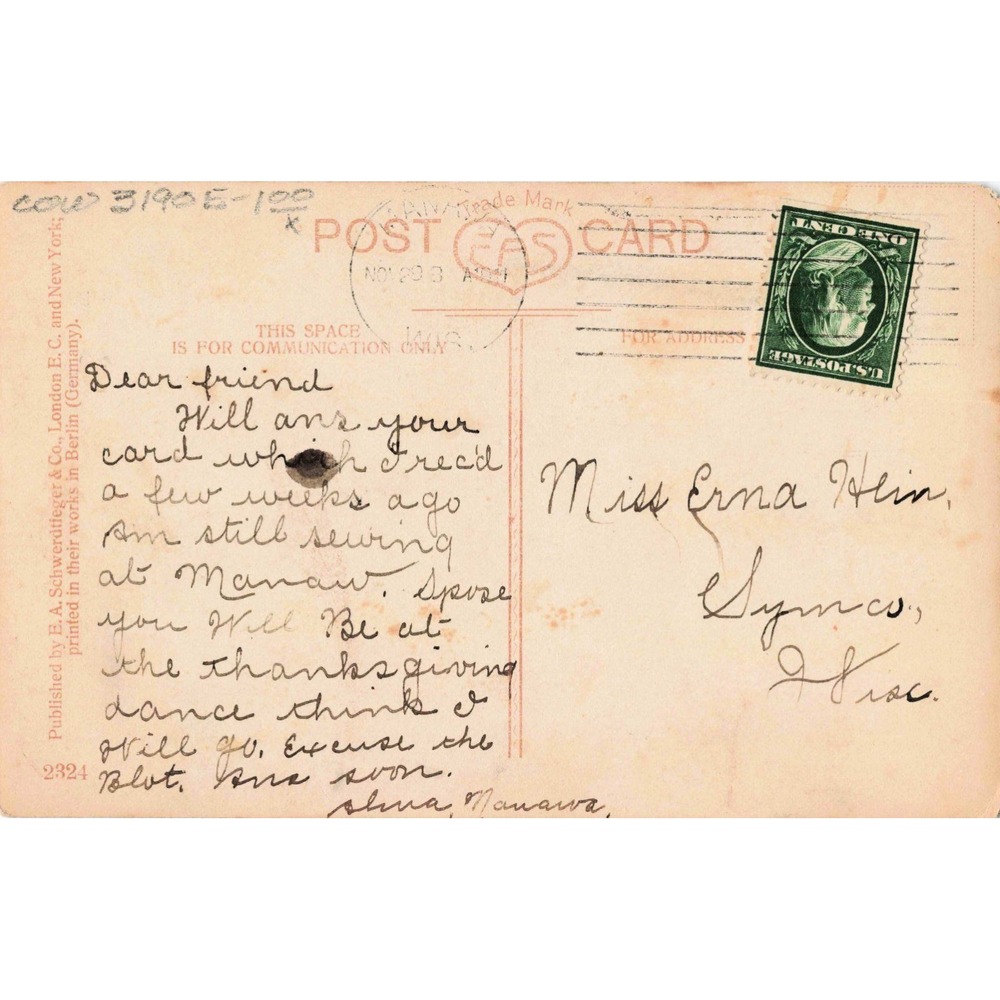 cow 31905-1 00
x
Trade Mark
POST EAS CARD
NOV 29 8 A
WIS.
ONE CENT
U.S. POSTAGE
THIS SPACE
IS FOR COMMUNICATION ONLY
FOR ADDRESS
Published by E. A. Schwerdtfeger & Co., London E. C. and New York;
printed in their works in Berlin (Germany).
2324
Dear friend
Will ans your
card which I rec'd
a few weeks ago
Am still sewing
at Manaw. Spose
you Will Be at
the thanksgiving
dance think I
Will go. Excuse the
Blot. Ans soon.
Manawa,
Miss Erna Hein,
Symco,
Wisc.